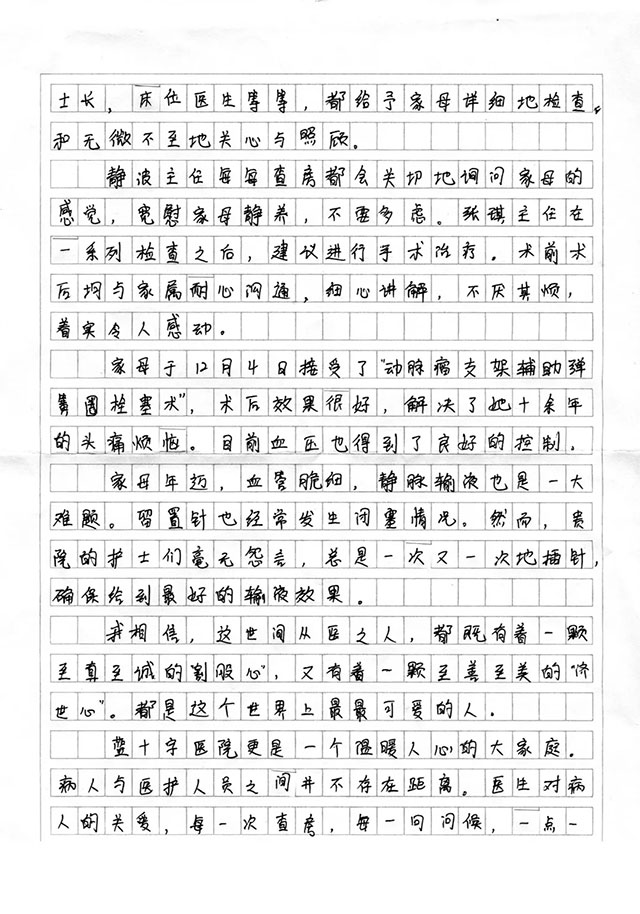 士长，床位医生等等，都给予家母详细地检查，
和无微不至地关心与照顾。
静波主任每每查房都会关切地询问家母的
感觉，宽慰家母静养，不要多虑。张琪主任在
一系列检查之后，建议进行手术治疗。术前术
后均与家属耐心沟通，细心讲解，不厌其烦，
着实令人感动。
家母于12月4日接受了“动脉瘤支架辅助弹
簧圈栓塞术”，术后效果很好，解决了她十余年
的头痛烦恼。目前血压也得到了良好的控制。
家母年迈，血管脆细，静脉输液也是一大
难题。留置针也经常发生闭塞情况。然而，贵
院的护士们毫无怨言，总是一次又一次地插针，
确保给到最好的输液效果。
我相信，这世间从医之人，都既有着一颗
至真至诚的“割股心”，又有着一颗至善至美的“济
世心”。都是这个世界上最最可爱的人.
蓝十字医院更是一个温暖人心的大家庭。
病人与医护人员之间并不存在距离。医生对病
人的关爱，每一次查房，每一问问候，一点一